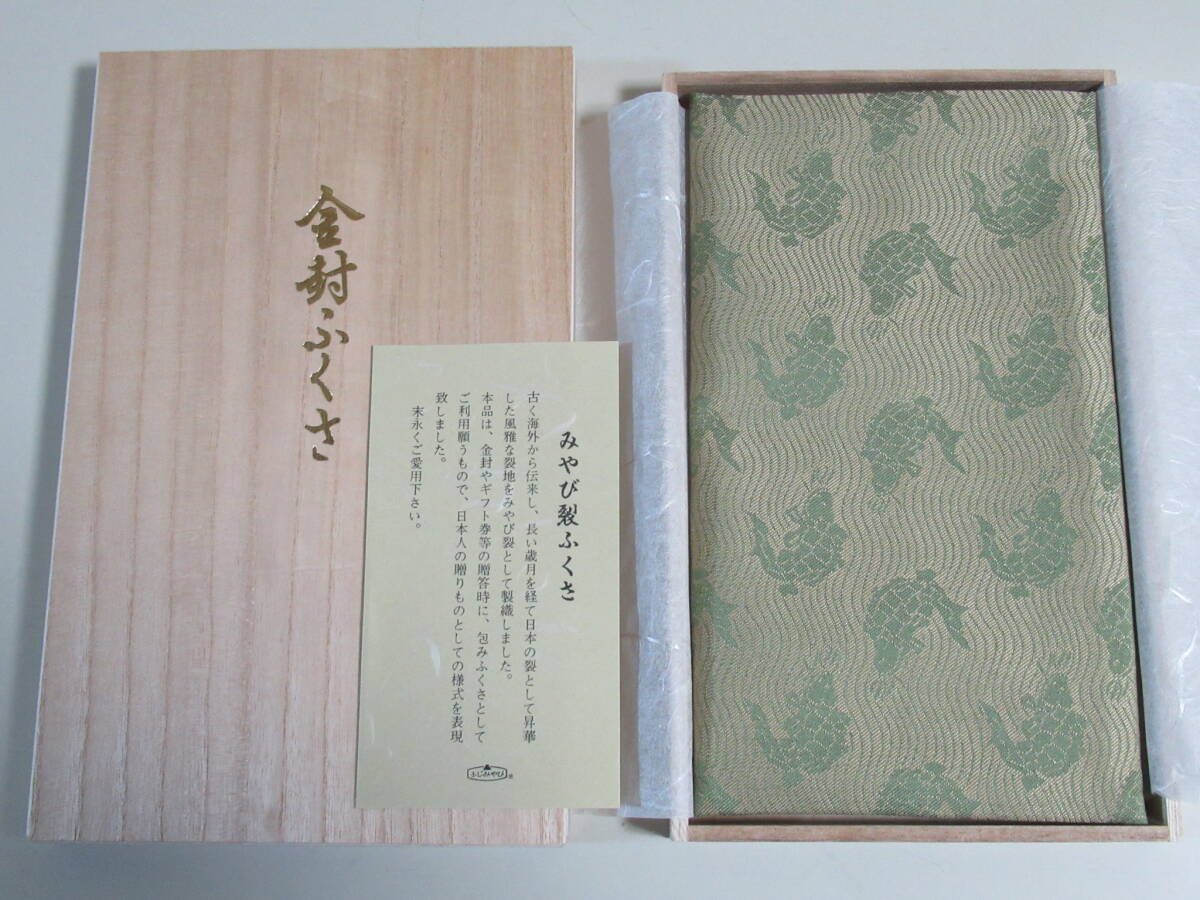 金封ふくさ
みやび裂ふくさ
古く海外から伝来し、長い歳月を経て日本の裂として昇華
した風雅な裂地をみやび裂として製織しました。
本品は、金封やギフト券等の贈答時に、包みふくさとして
ご利用願うもので、日本人の贈りものとしての様式を表現
致しました。
末永くご愛用下さい。
ふじのみやび